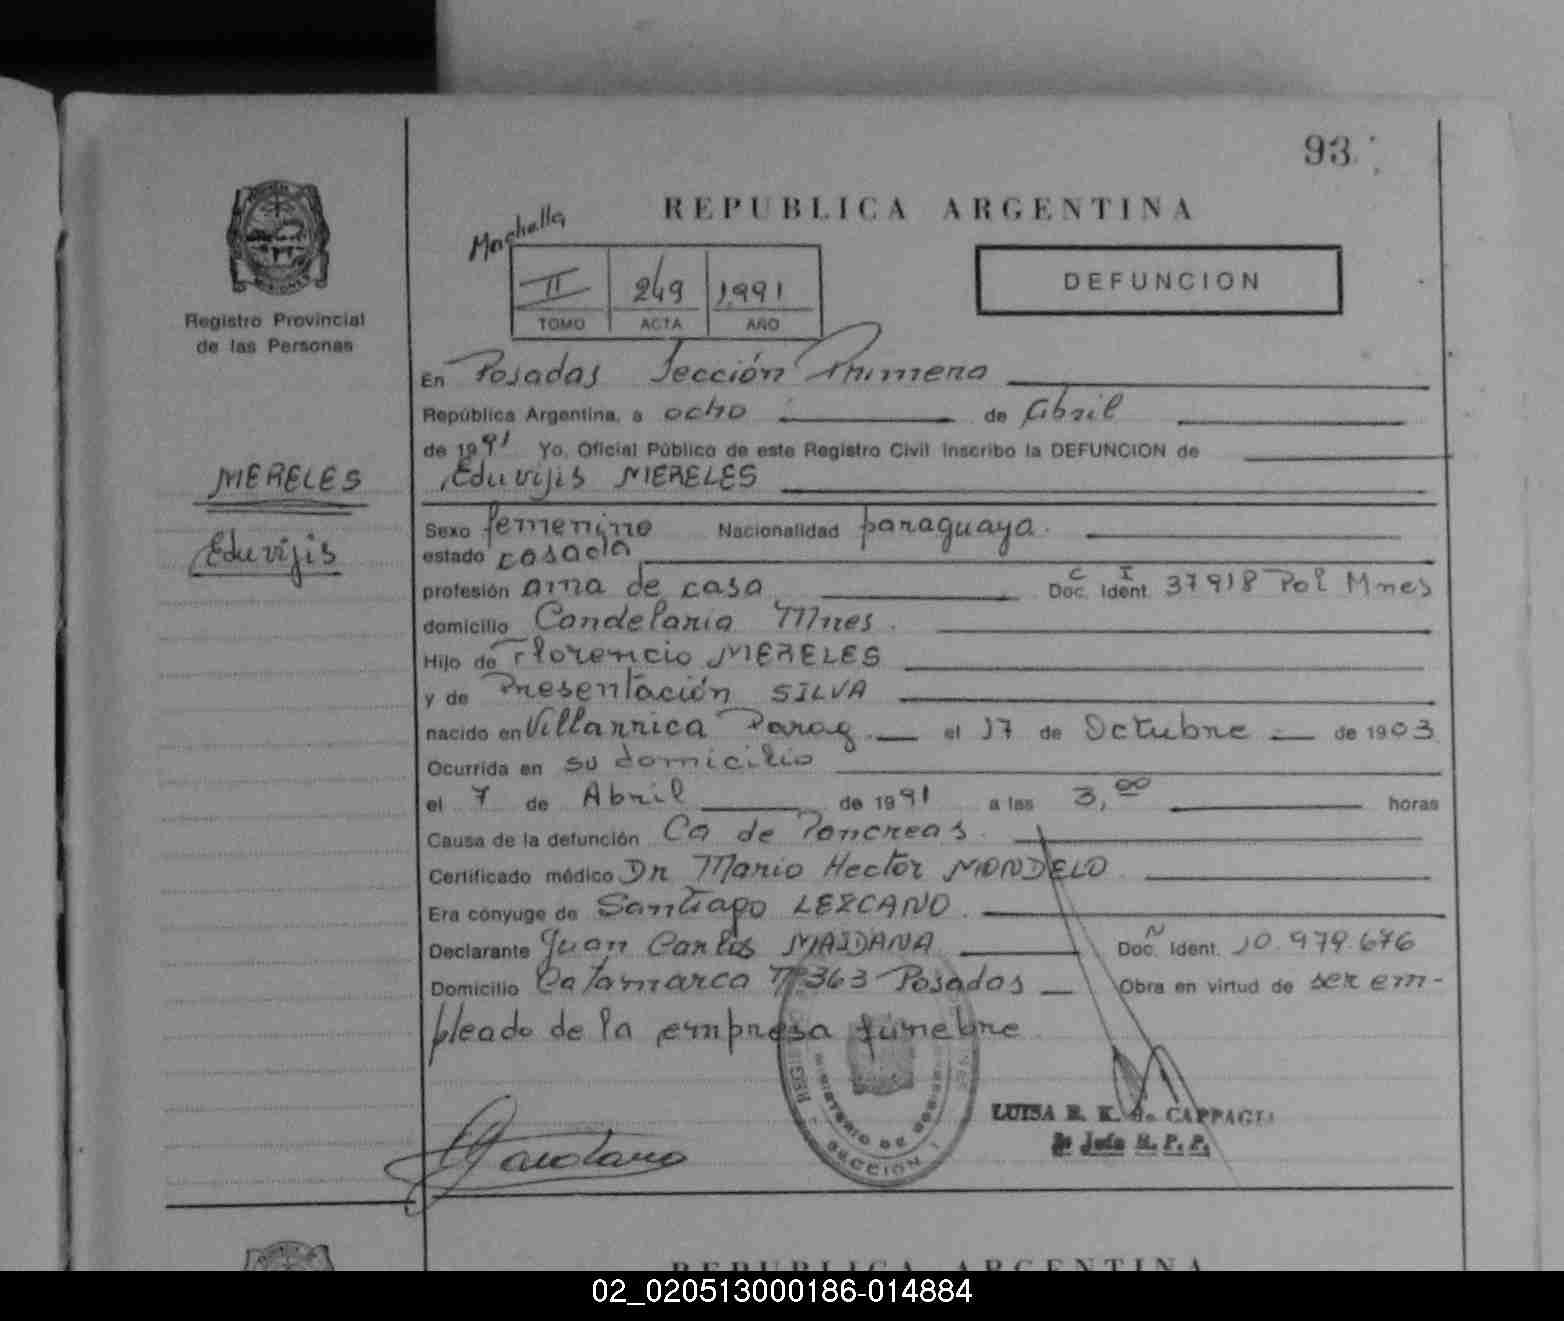 93
REPUBLICA ARGENTINA
DEFUNCION
II 249 1991
TOMO ACTA AÑO
Registro Provincial
de las Personas
MERELES
Eduvijis
En Posadas Sección Primera
República Argentina, a ocho de Abril
de 1991 Yo, Oficial Público de este Registro Civil inscribo la DEFUNCION de
Eduvijis MERELES
Sexo femenino Nacionalidad paraguaya.
estado casada
profesión ama de casa Doc. C Ident. I 37918 Pol Mnes
domicilio Candelaria Mnes.
Hijo de Florencio MERELES
y de Presentación SILVA
nacido en Villarrica Parag. el 17 de Octubre de 1903
Ocurrida en su domicilio
el 7 de Abril de 1991 a las 3,00 horas
Causa de la defunción Ca de Pancreas.
Certificado médico Dr Mario Hector MONDELO
Era cónyuge de Santiago LEZCANO.
Declarante Juan Carlos MAIDANA Doc. N Ident. 10.979.676
Domicilio Catamarca Nº363 Posadas Obra en virtud de ser em-
pleado de la empresa funebre
MINISTERIO DE
SECCION 1
LUISA R. K. de CAPPAGLI
Jefe R. P. P.
REPUBLICA ARGENTINA
02_020513000186-014884